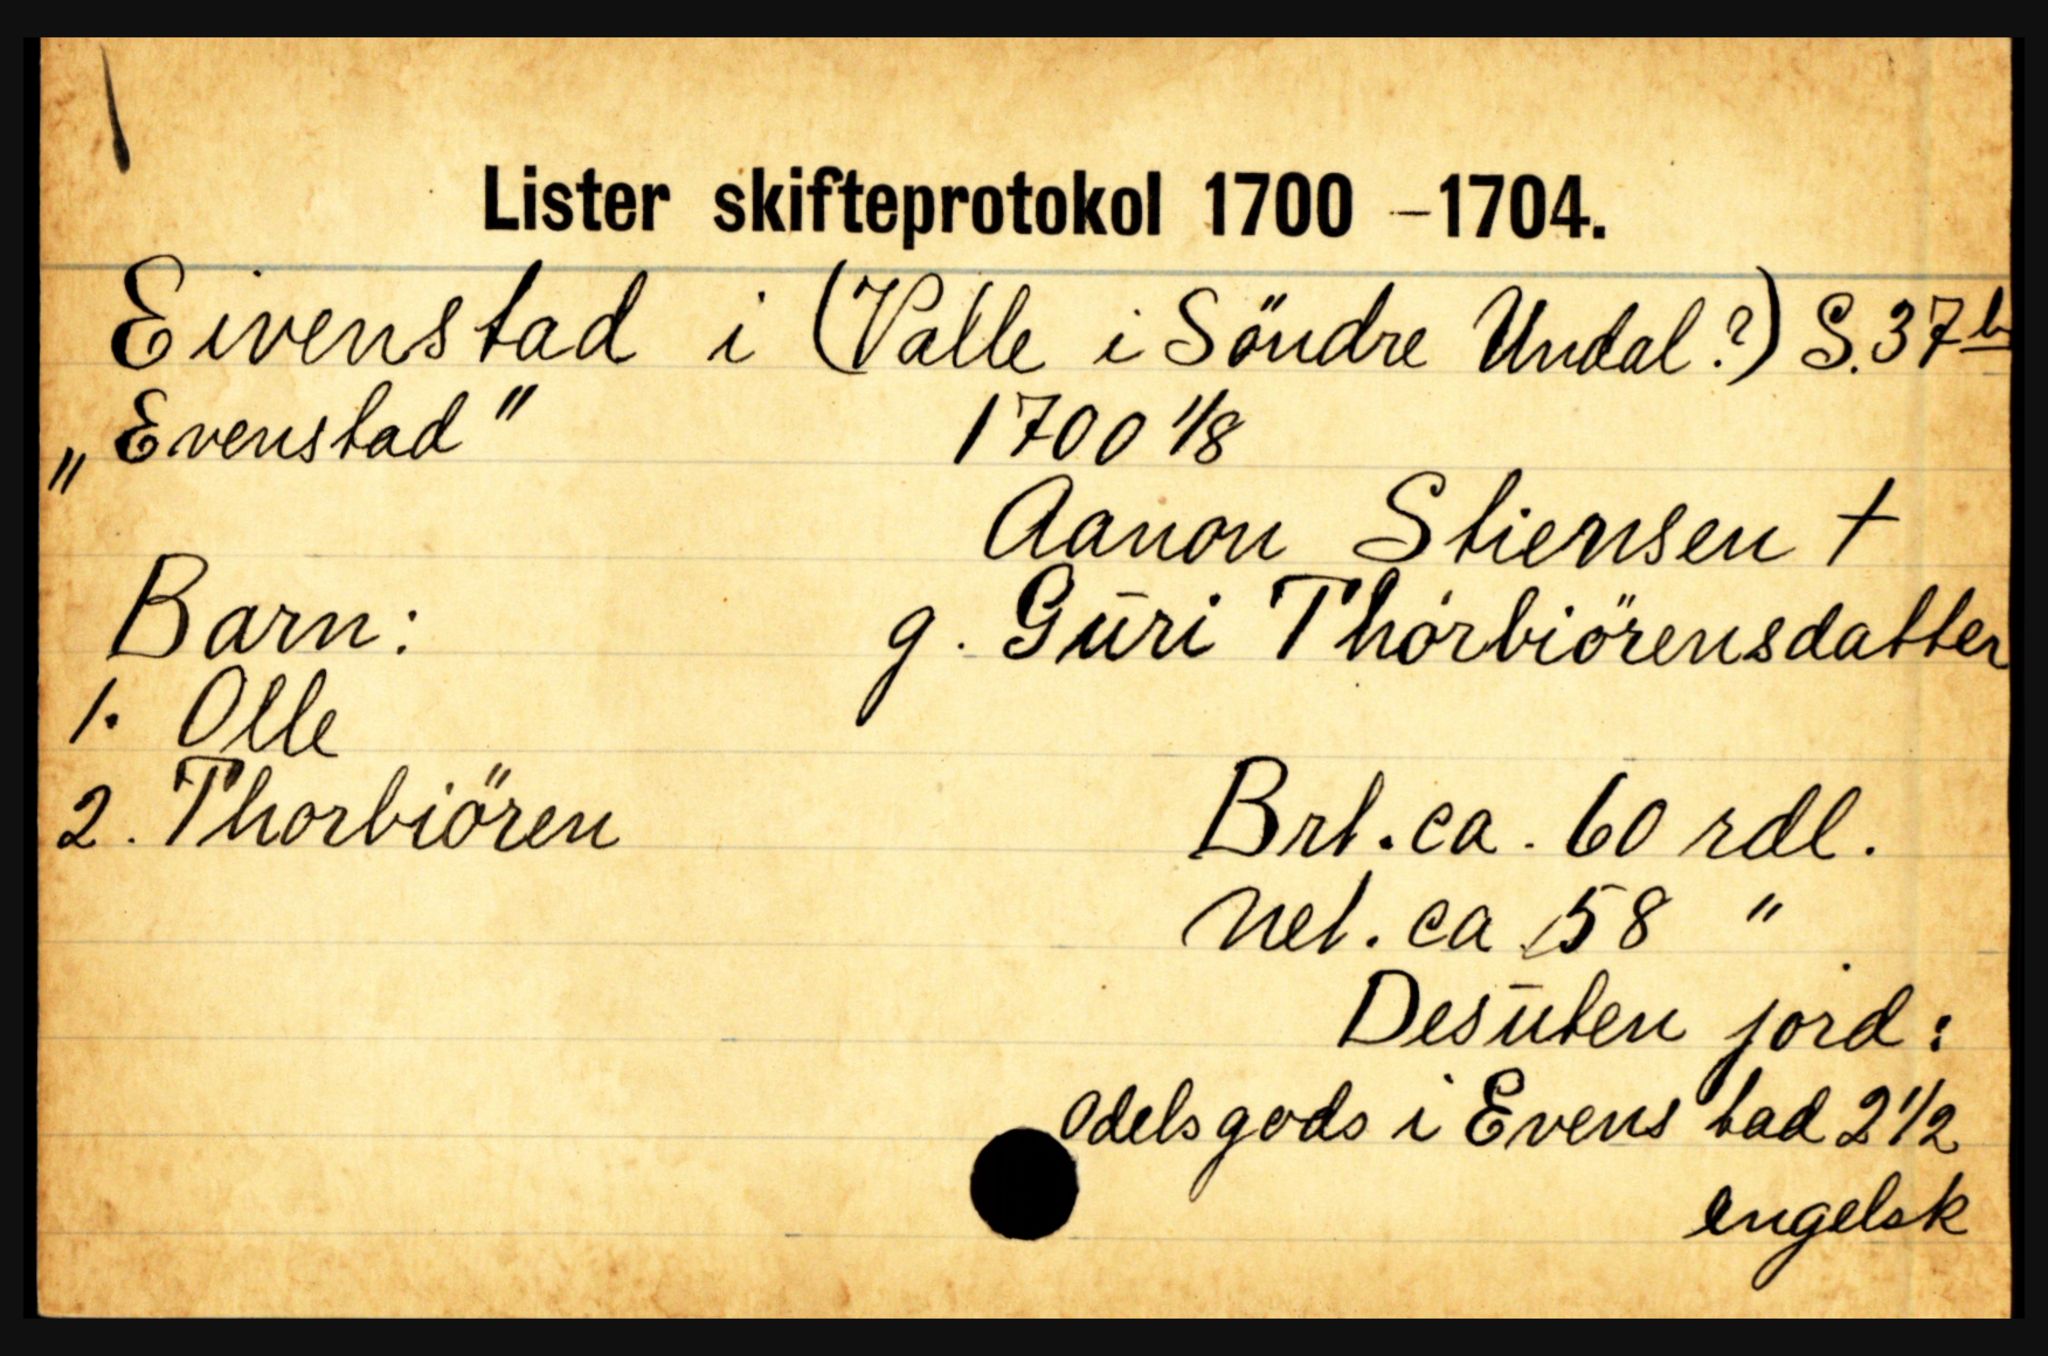 Lister skifteprotokol 1700 –1704.
Eivenstad i (Valle i Söndre Undal?) S. 37b
„Evenstad" 1700 1/8
Aanon Stiensen +
Barn: g. Guri Thorbiörensdatter
1. Olle
2. Thorbiören Brt. ca. 60 rdl.
Net. ca 58 "
Desuten jord:
Odelsgods i Evenstad 2 1/2
engelsk